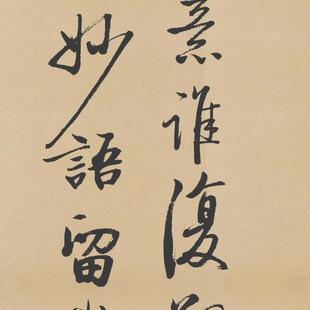 意誰復
妙語留